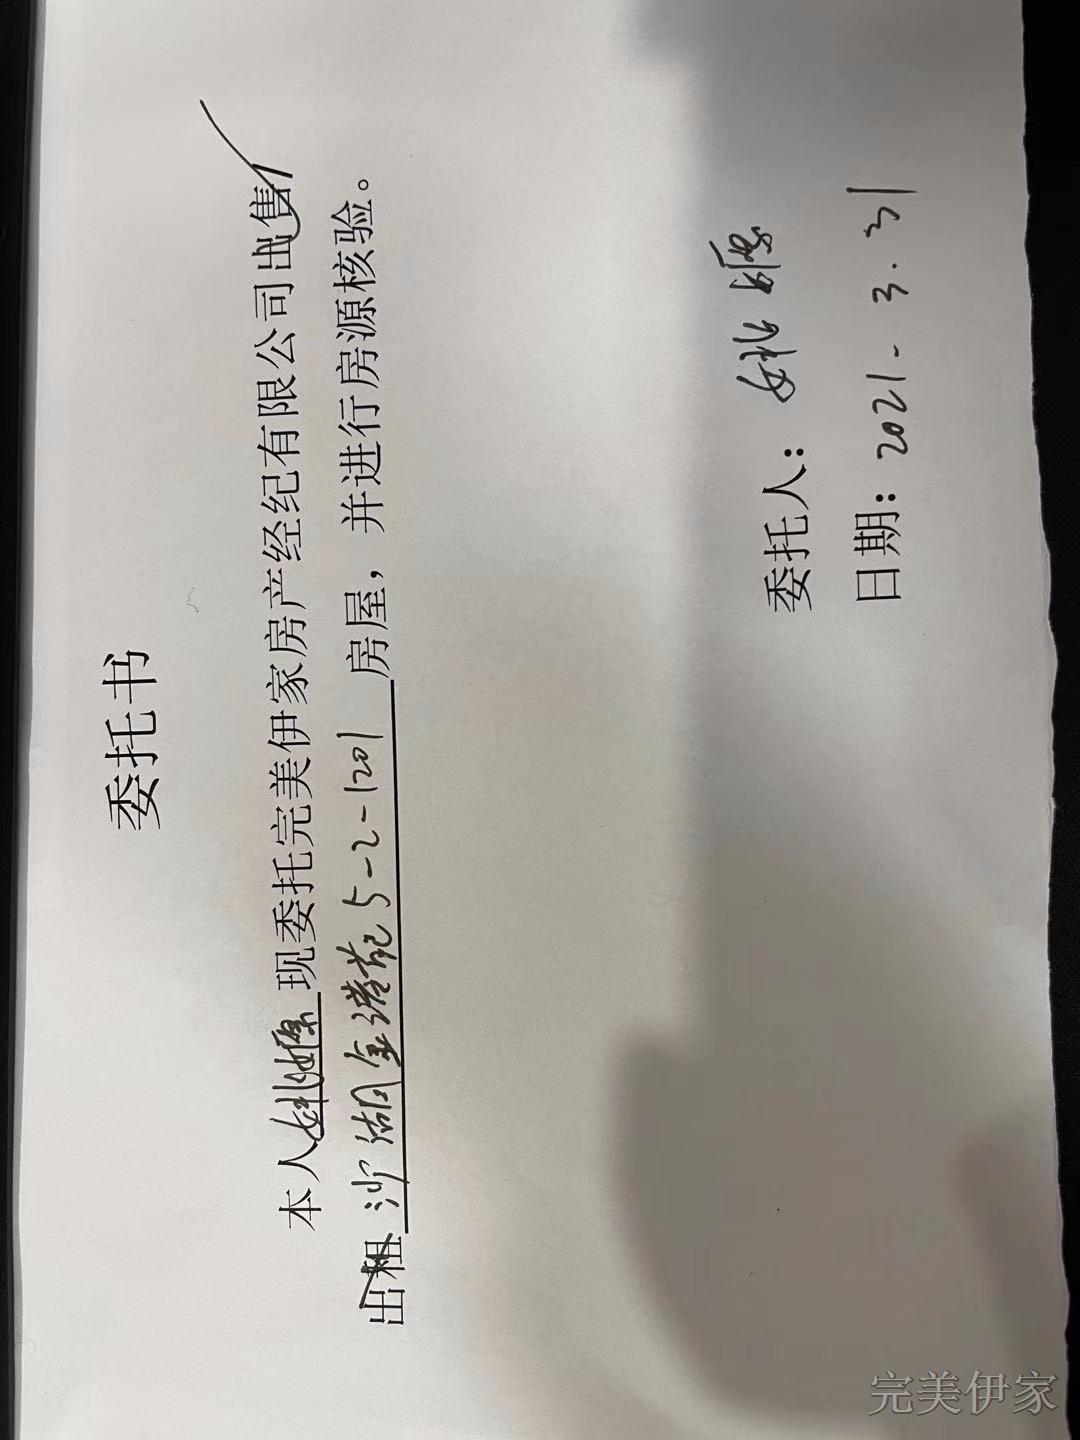 委托书
本人姚嫄现委托完美伊家房产经纪有限公司出售/
出租沙湖金港苑5-2-1201房屋，并进行房源核验。
委托人：姚嫄
日期：2021.3.31
完美伊家